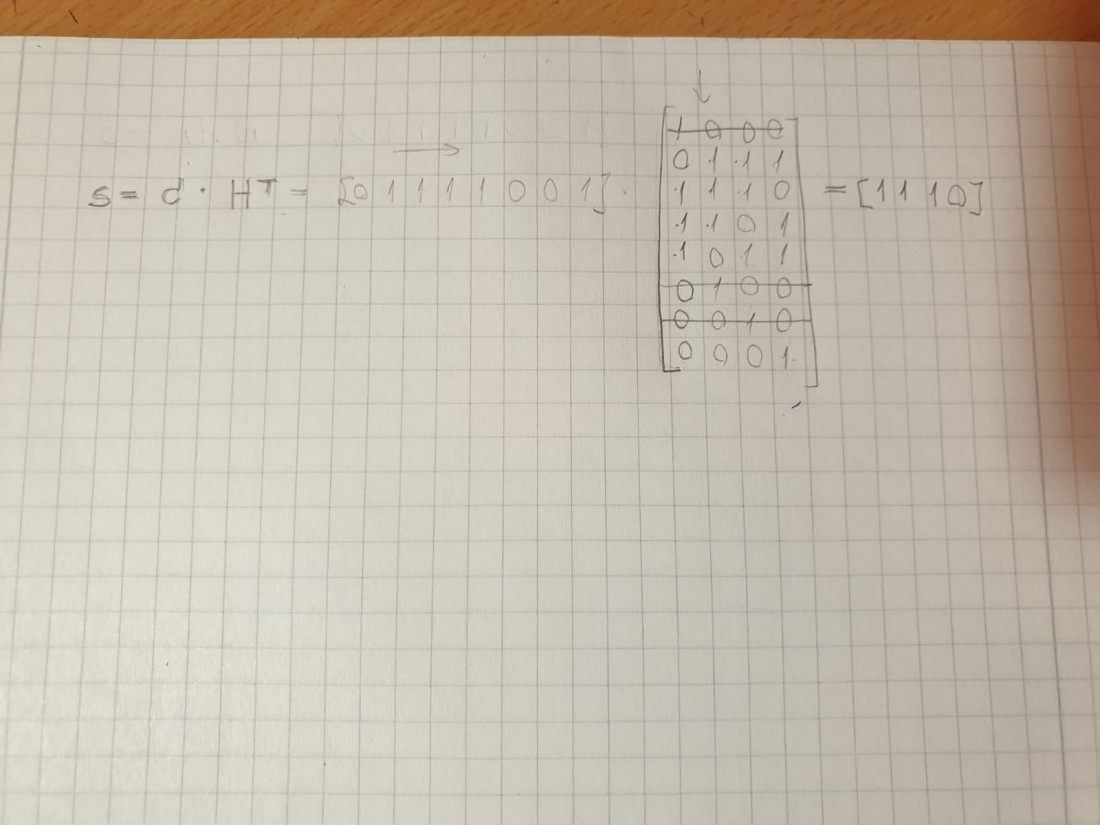 s = d · Hᵀ = [0 1 1 1 1 0 0 1] · = [1 1 1 0]
1 0 0 0
0 1 1 1
1 1 1 0
1 1 0 1
1 0 1 1
0 1 0 0
0 0 1 0
0 0 0 1